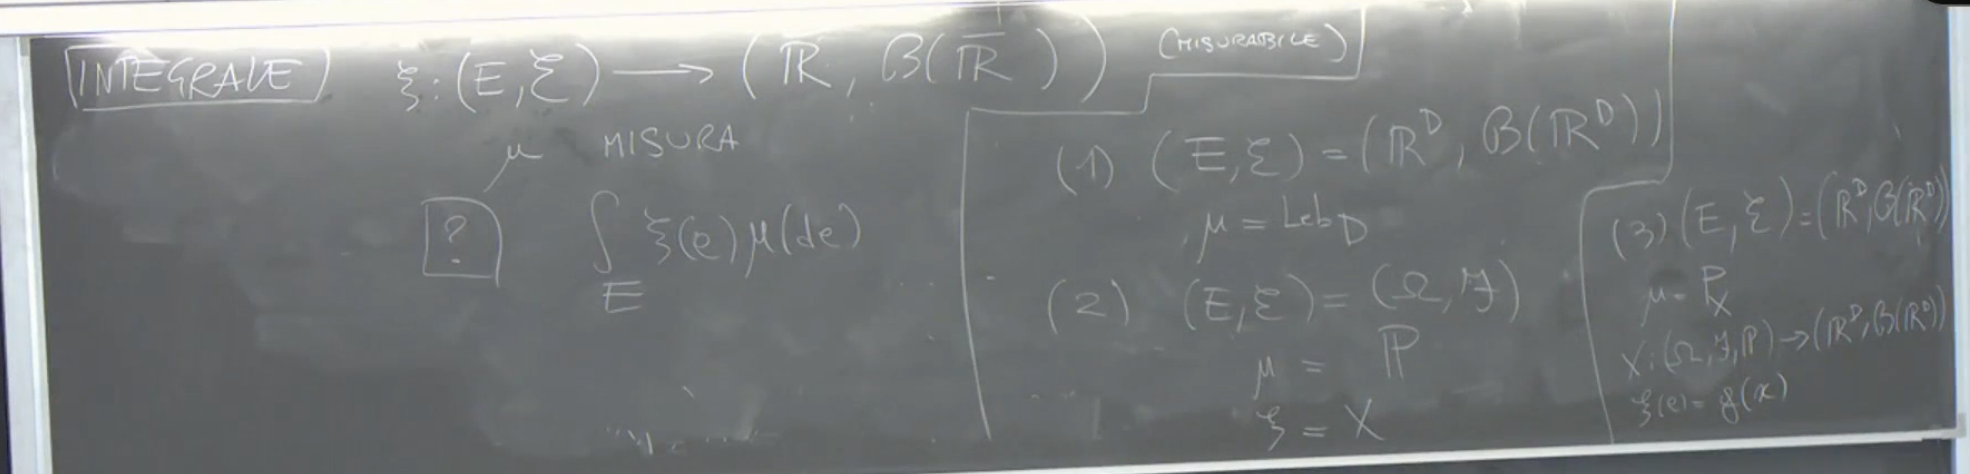 INTEGRALE ξ: (E, ℰ) ⟶ (ℝ̅, ℬ(ℝ̅)) (MISURABILE)
μ MISURA
? ∫_E ξ(e) μ(de)
(1) (E, ℰ) = (ℝᴰ, ℬ(ℝᴰ))
μ = Leb_D
(2) (E, ℰ) = (Ω, ℱ)
μ = ℙ
ξ = X
(3) (E, ℰ) = (ℝᴰ, ℬ(ℝᴰ))
μ = P_X
X: (Ω, ℱ, ℙ) → (ℝᴰ, ℬ(ℝᴰ))
ξ(e) = g(x)